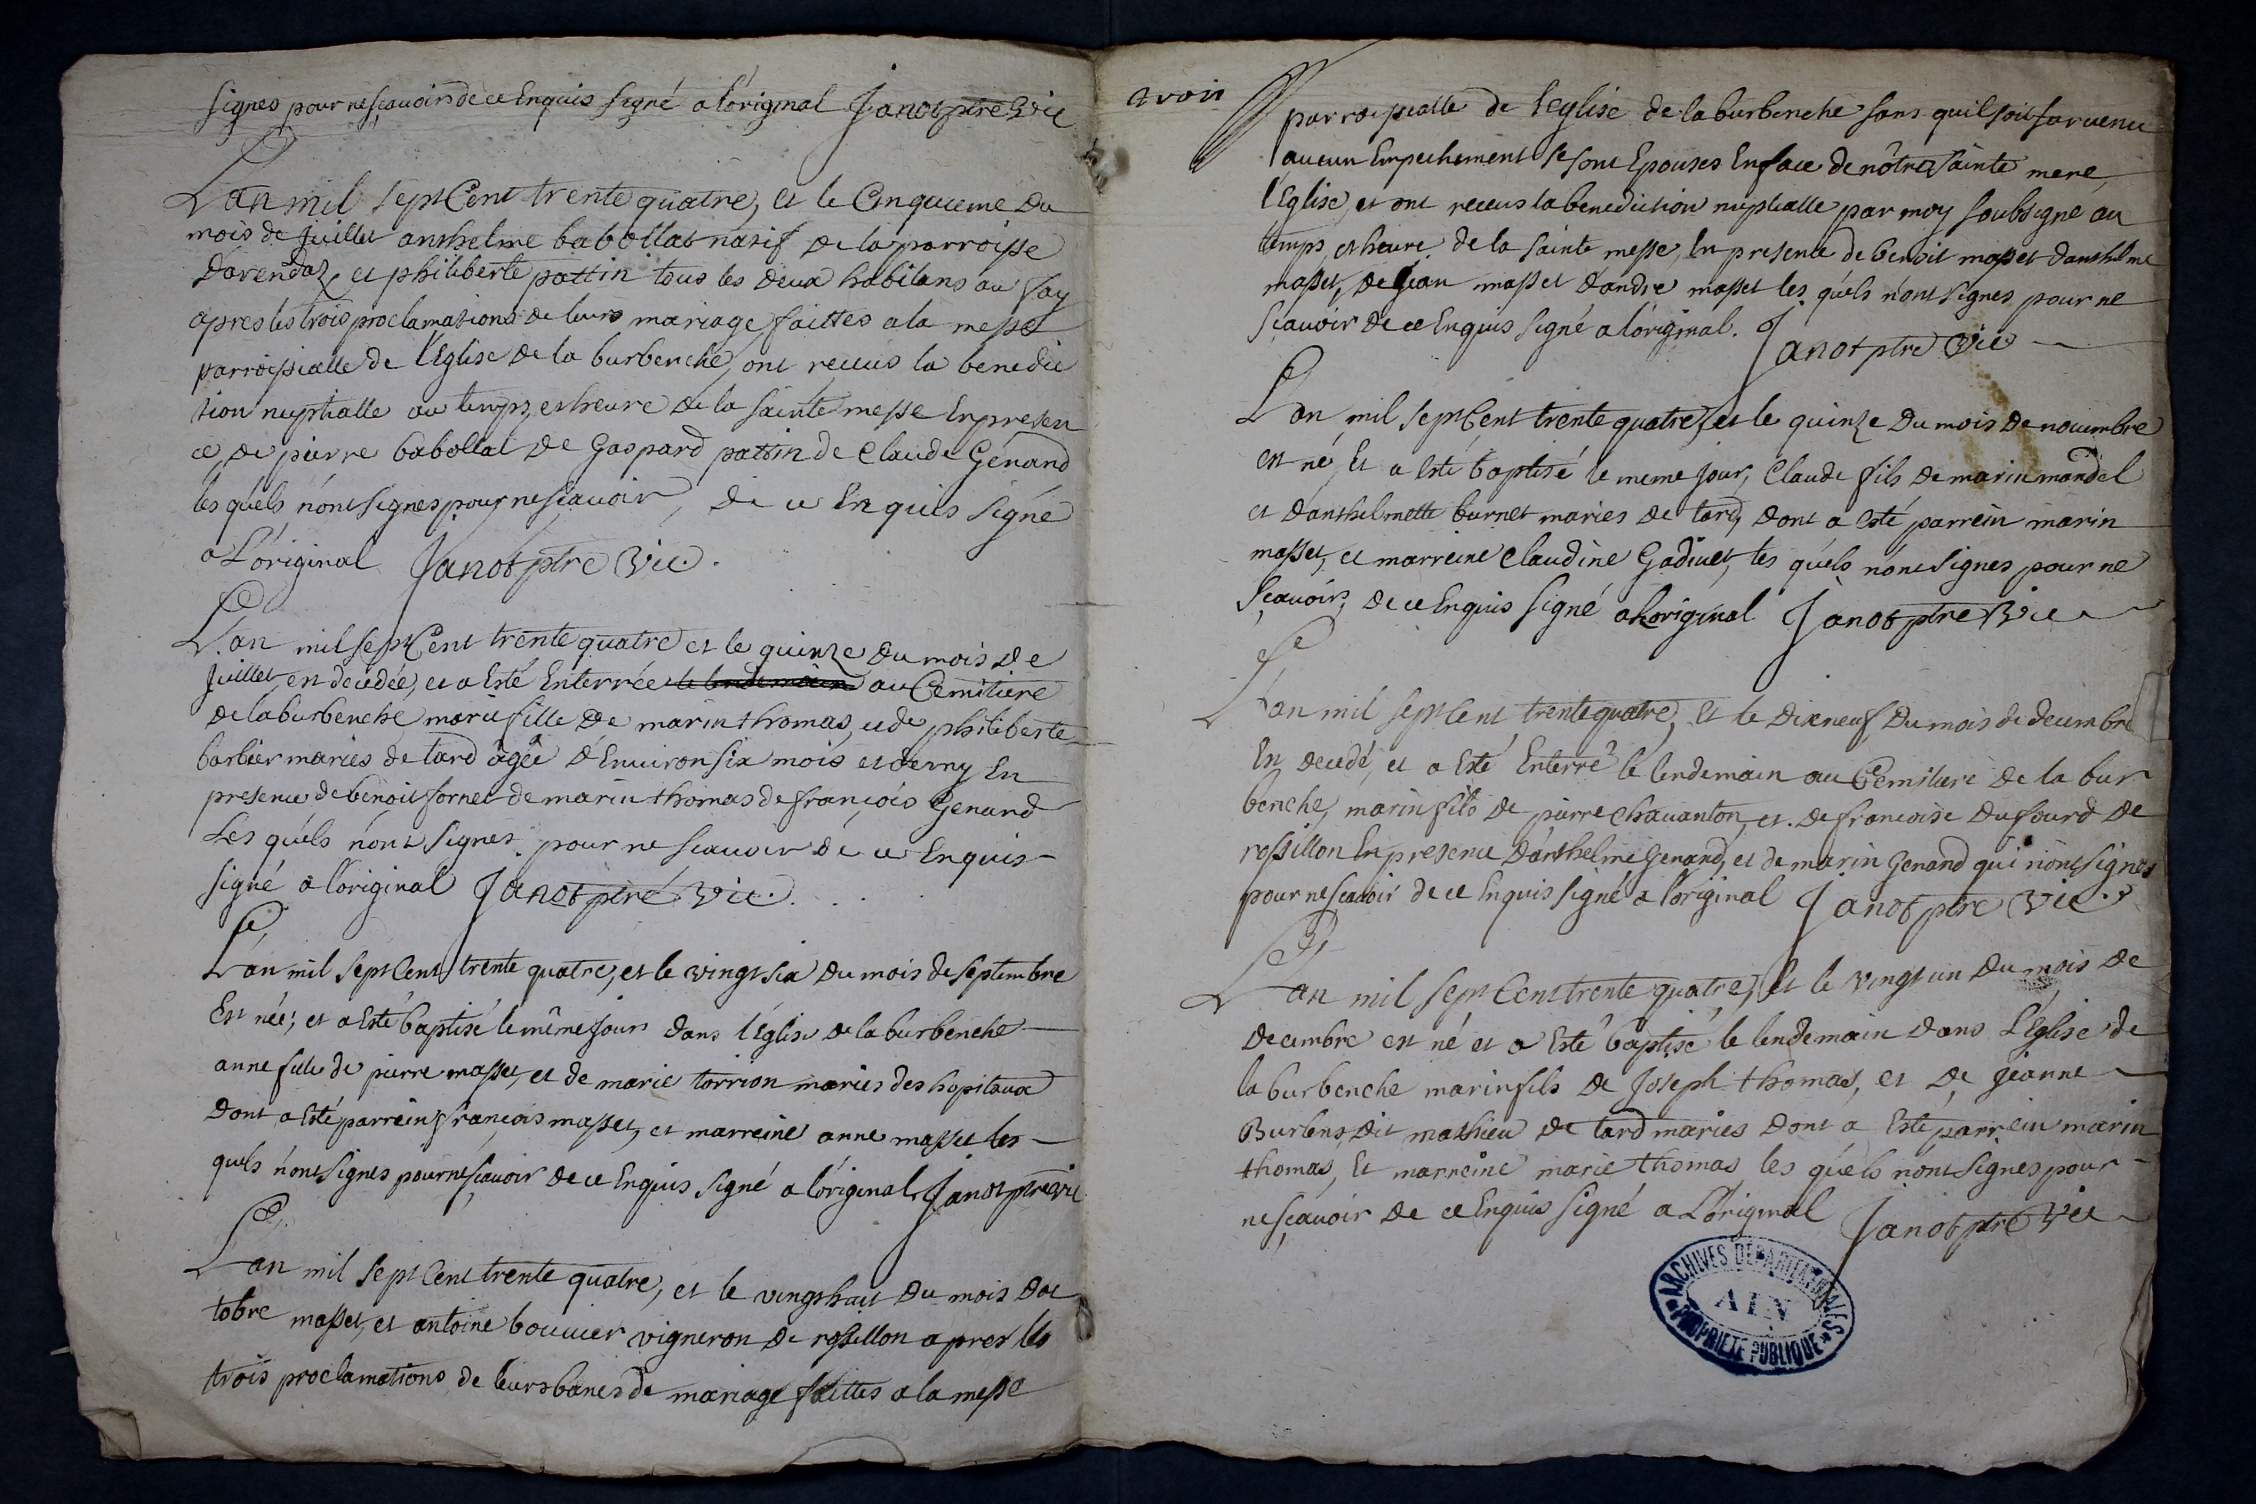 signes pour ne sçauoir de ce Enquis signé a l'original Janot ptre Vic
L'an mil sept Cent trente quatre, et le Cinquieme du
mois de Juillet anthelme babollat natif de la parroisse
Darendaz et philiberte pattin tous les deux habitans au fay
apres les trois proclamations de leurs mariage faittes a la messe
parroissialle de l'Eglise de la burbenche, ont receus la benedic
tion nuptialle au temps, et heure de la sainte messe En presen
ce, de pierre babollat de Gaspard pattin de Claude Genand
les quels n'ont signes pour ne sçauoir, de ce Enquis signé
a L'original Janot ptre Vic.
L'an mil sept Cent trente quatre et le quinze du mois de
Juillet est decedée, et a Esté Enterrée le lendemain au Cemitiere
de la burbenche marie fille de marin thomas, et de philiberte
barbier maries de tard âgée d'Enuiron six mois et demy En
presence de benoit fornet de marin thomas de françois Genand
Les quels n'ont signes pour ne scauoir de ce Enquis
signé a l'original Janot ptre Vic.
L'an mil sept Cent trente quatre, et le vingt six du mois de septembre
Est née, et a Esté baptisé le même jour dans l'Eglise de la burbenche
anne fille de pierre masset, et de marie torrion maries des hopitaux
dont a Esté parrein françois masset, et marreine anne masset les
quels n'ont signes pour ne sçauoir de ce Enquis signé a l'original Janot ptre vic
L'an mil sept Cent trente quatre, et le vingt huit du mois d'oc
tobre masset, et antoine bouuier vigneron de rossillon apres les
trois proclamations de leurs banes de mariage faittes a la messe
parroissialle de l'eglise de la burbenche sans qu'il soit saruenu
aucun Empechement se sont Epouses En face de nôtre sainte mere
l'Eglise, et ont receus la benediction nuptialle par moy soubsigne au
temps, et heure de la sainte messe, En presence de benoit masset d'anthelme
masset, de jean masset d'andre masset les quels n'ont signes pour ne
sçauoir de ce Enquis signé a l'original. Janot ptre Vic
L'an mil sept Cent trente quatre, et le quinze du mois de nouembre
est né, Et a Esté baptisé le meme jour, Claude fils de marin mandel
et d'anthelmette burnet maries de tard, dont a esté parrein marin
masset, et marreine Claudine Gadiuet, les quels n'ont signes pour ne
sçauoir, de ce Enquis signé a Loriginal Janot ptre Vic
L'an mil sept Cent trente quatre, Et le dixneuf du mois de decembre
Est decedé, et a Esté Enterré le lendemain au Cemitiere de la bur
benche, marin fils de pierre Chauanton, et de francoise dufourd de
rossillon En presence d'anthelme Genand, et de marin Genand qui n'ont signes
pour ne scauoir de ce Enquis signé a l'original Janot ptre Vic.
L'an mil sept Cent trente quatre, Et le vingt un du mois de
decembre est né et a Esté baptisé le lendemain dans L'Eglise de
la burbenche marin fils de Joseph thomas, et de jeanne
Burlens dit mathieu de tard maries dont a Esté parrein marin
thomas, Et marreine marie thomas les quels n'ont signes pour
ne sçauoir de ce Enquis signé a L'original Janot ptre Vic
ARCHIVES DEPARTEMENTALES
AIN
PROPRIETE PUBLIQUE